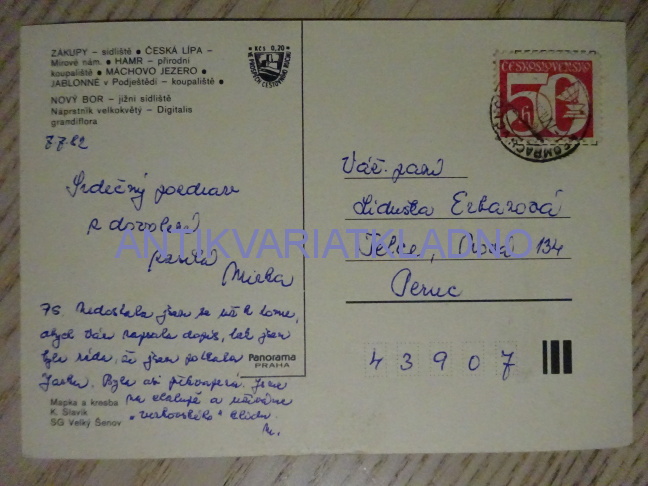 ZÁKUPY – sídliště ● ČESKÁ LÍPA –
Mírové nám. ● HAMR – přírodní
koupaliště ● MÁCHOVO JEZERO ●
JABLONNÉ v Podještědí – koupaliště ●
NOVÝ BOR – jižní sídliště
Náprstník velkokvětý – Digitalis
grandiflora
Kčs 0,20
ČESKOSLOVENSKO
50 h
7.7.82
Srdečný pozdrav
z dovolené
posílá
Mirka
Váž. paní
Liduška Erbanová
Telce,
134
Peruc
43907
PS. Nedostala jsem se už k tomu,
abych Vám napsala dopis, tak jsem
byla ráda, že jsem potkala
Jarku. Byla asi překvapená. Jsme
na chalupě a užíváme
"venkovského" klidu.
M.
Panorama
PRAHA
Mapka a kresba
K. Slavík
SG Velký Šenov
ANTIKVARIATKLADNO